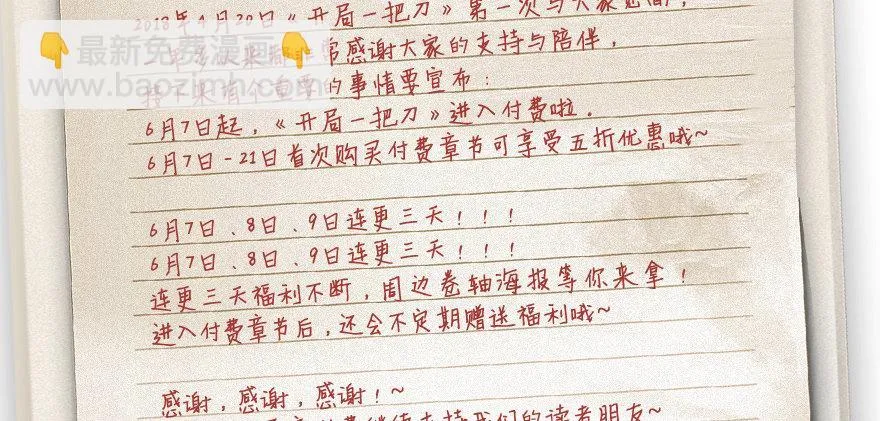 2018年4月20日《开局一把刀》第一次与大家见面，
最新免费漫画
常感谢大家的支持与陪伴，
www.baozimh.com
的事情要宣布：
6月7日起，《开局一把刀》进入付费啦．
6月7日-21日首次购买付费章节可享受五折优惠哦~
6月7日、8日、9日连更三天！！！
6月7日、8日、9日连更三天！！！
连更三天福利不断，周边卷轴海报等你来拿！
进入付费章节后，还会不定期赠送福利哦~
感谢，感谢，感谢！~
继续支持我们的读者朋友~